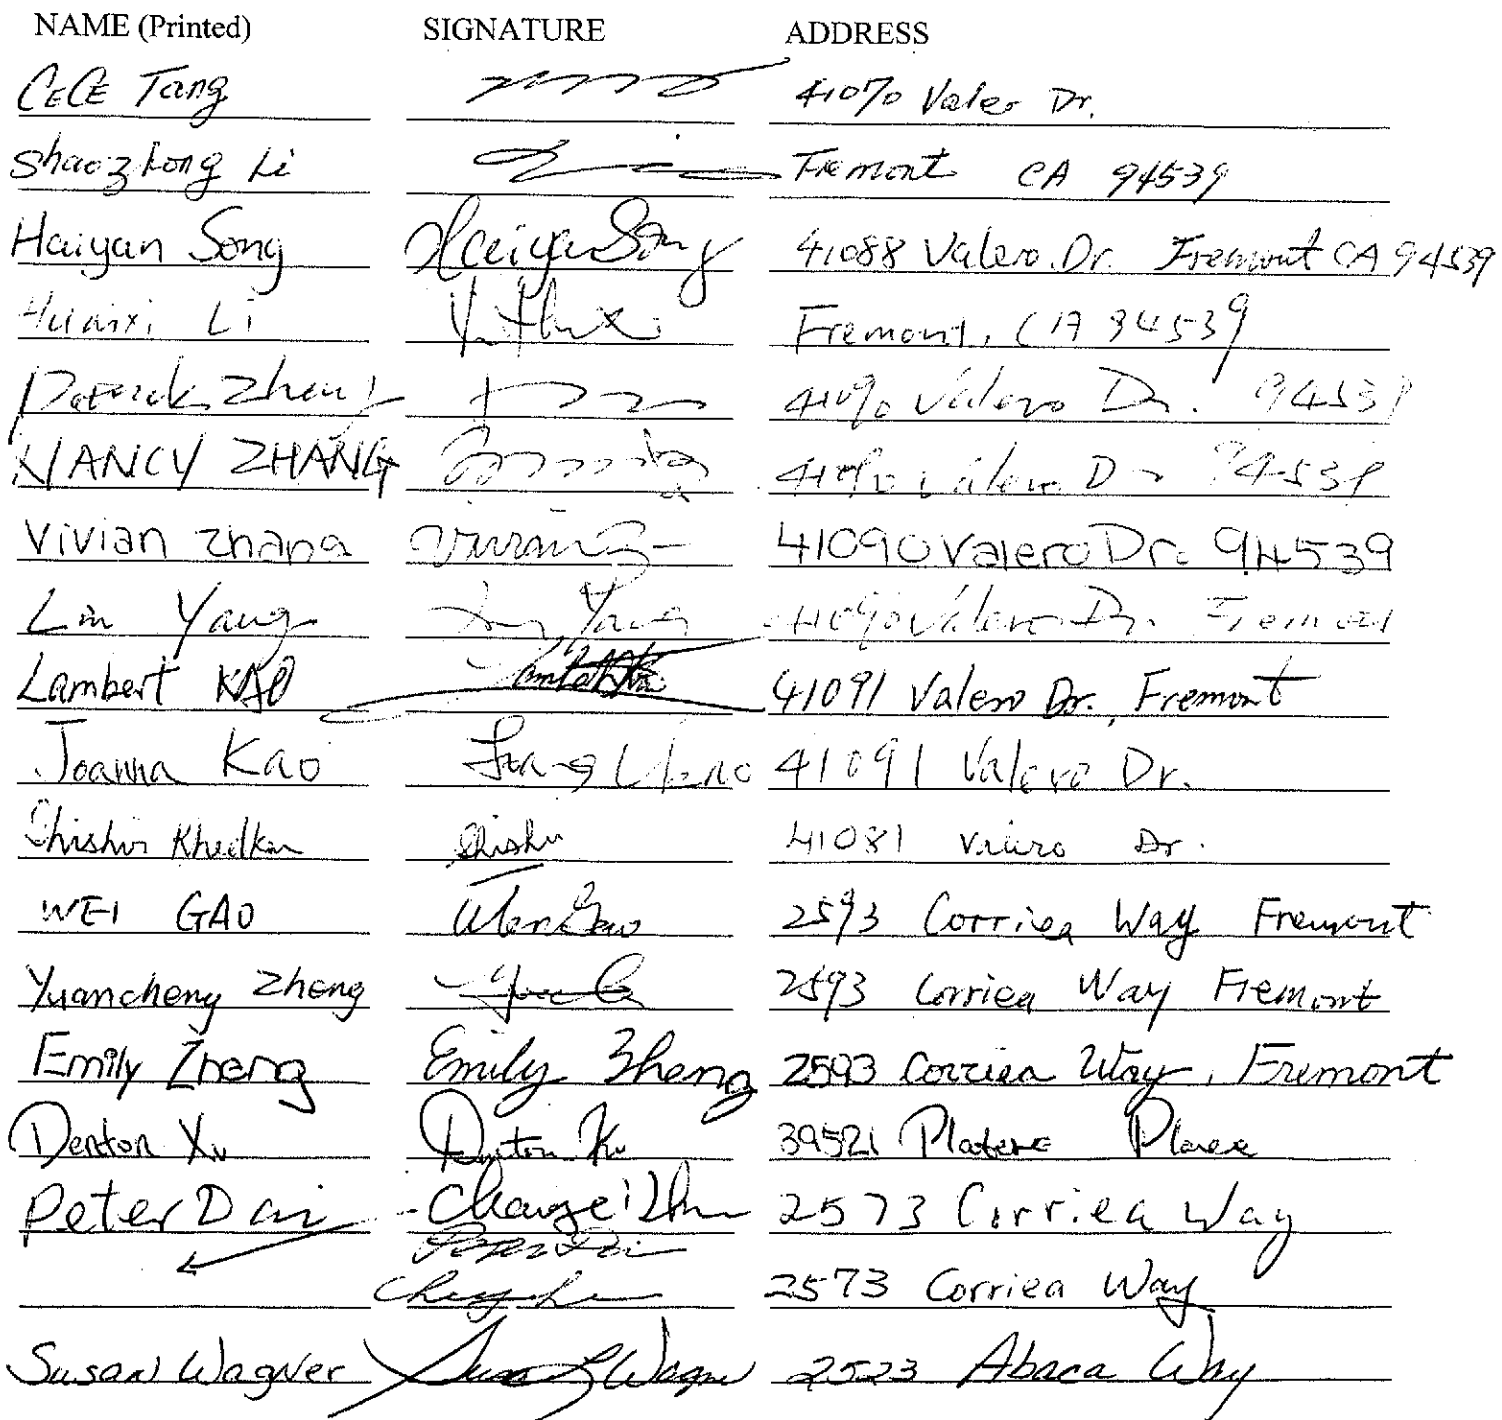 NAME (Printed) SIGNATURE ADDRESS
CECE Tang 41070 Valero Dr.
Shaozhong Li Fremont CA 94539
Haiyan Song Haiyan Song 41088 Valero Dr. Fremont CA 94539
Huaixi Li Fremont, CA 94539
Patrick Zheng 41090 Valero Dr. 94539
NANCY ZHANG 41090 Valero Dr 94539
Vivian zhang Vivian 41090 Valero Dr. 94539
Lin Yang Lin Yang 41090 Valero Dr. Fremont
Lambert KAO 41091 Valero Dr., Fremont
Joanna Kao 41091 Valero Dr.
Shishir Khedkar Shishir 41081 Valero Dr.
WEI GAO Wei Gao 2593 Corriea Way Fremont
Yuancheng Zheng 2593 Corriea Way Fremont
Emily Zheng Emily Zheng 2593 Corriea Way, Fremont
Denton Xu Denton Xu 39521 Platero Place
Peter Dai 2573 Corriea Way
Peter Dai
2573 Corriea Way
Susan Wagner Susan Wagner 2523 Abaca Way